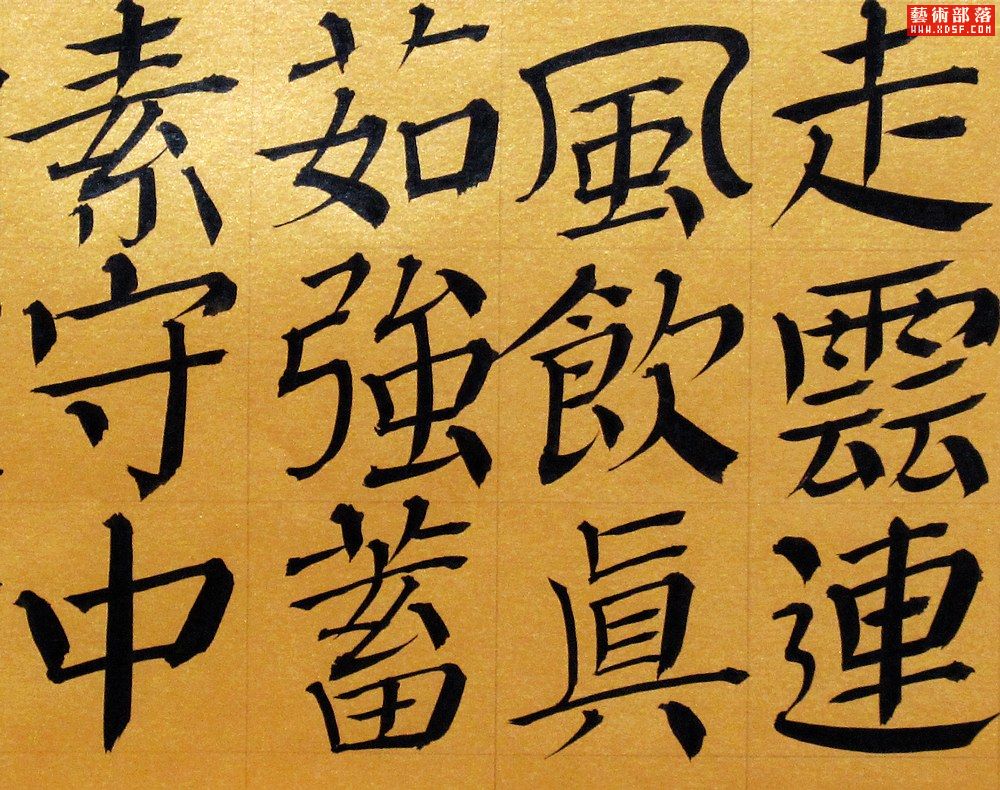 走雲連
風飲真
茹強蓄
素守中
藝術部落
WWW.XDSF.COM